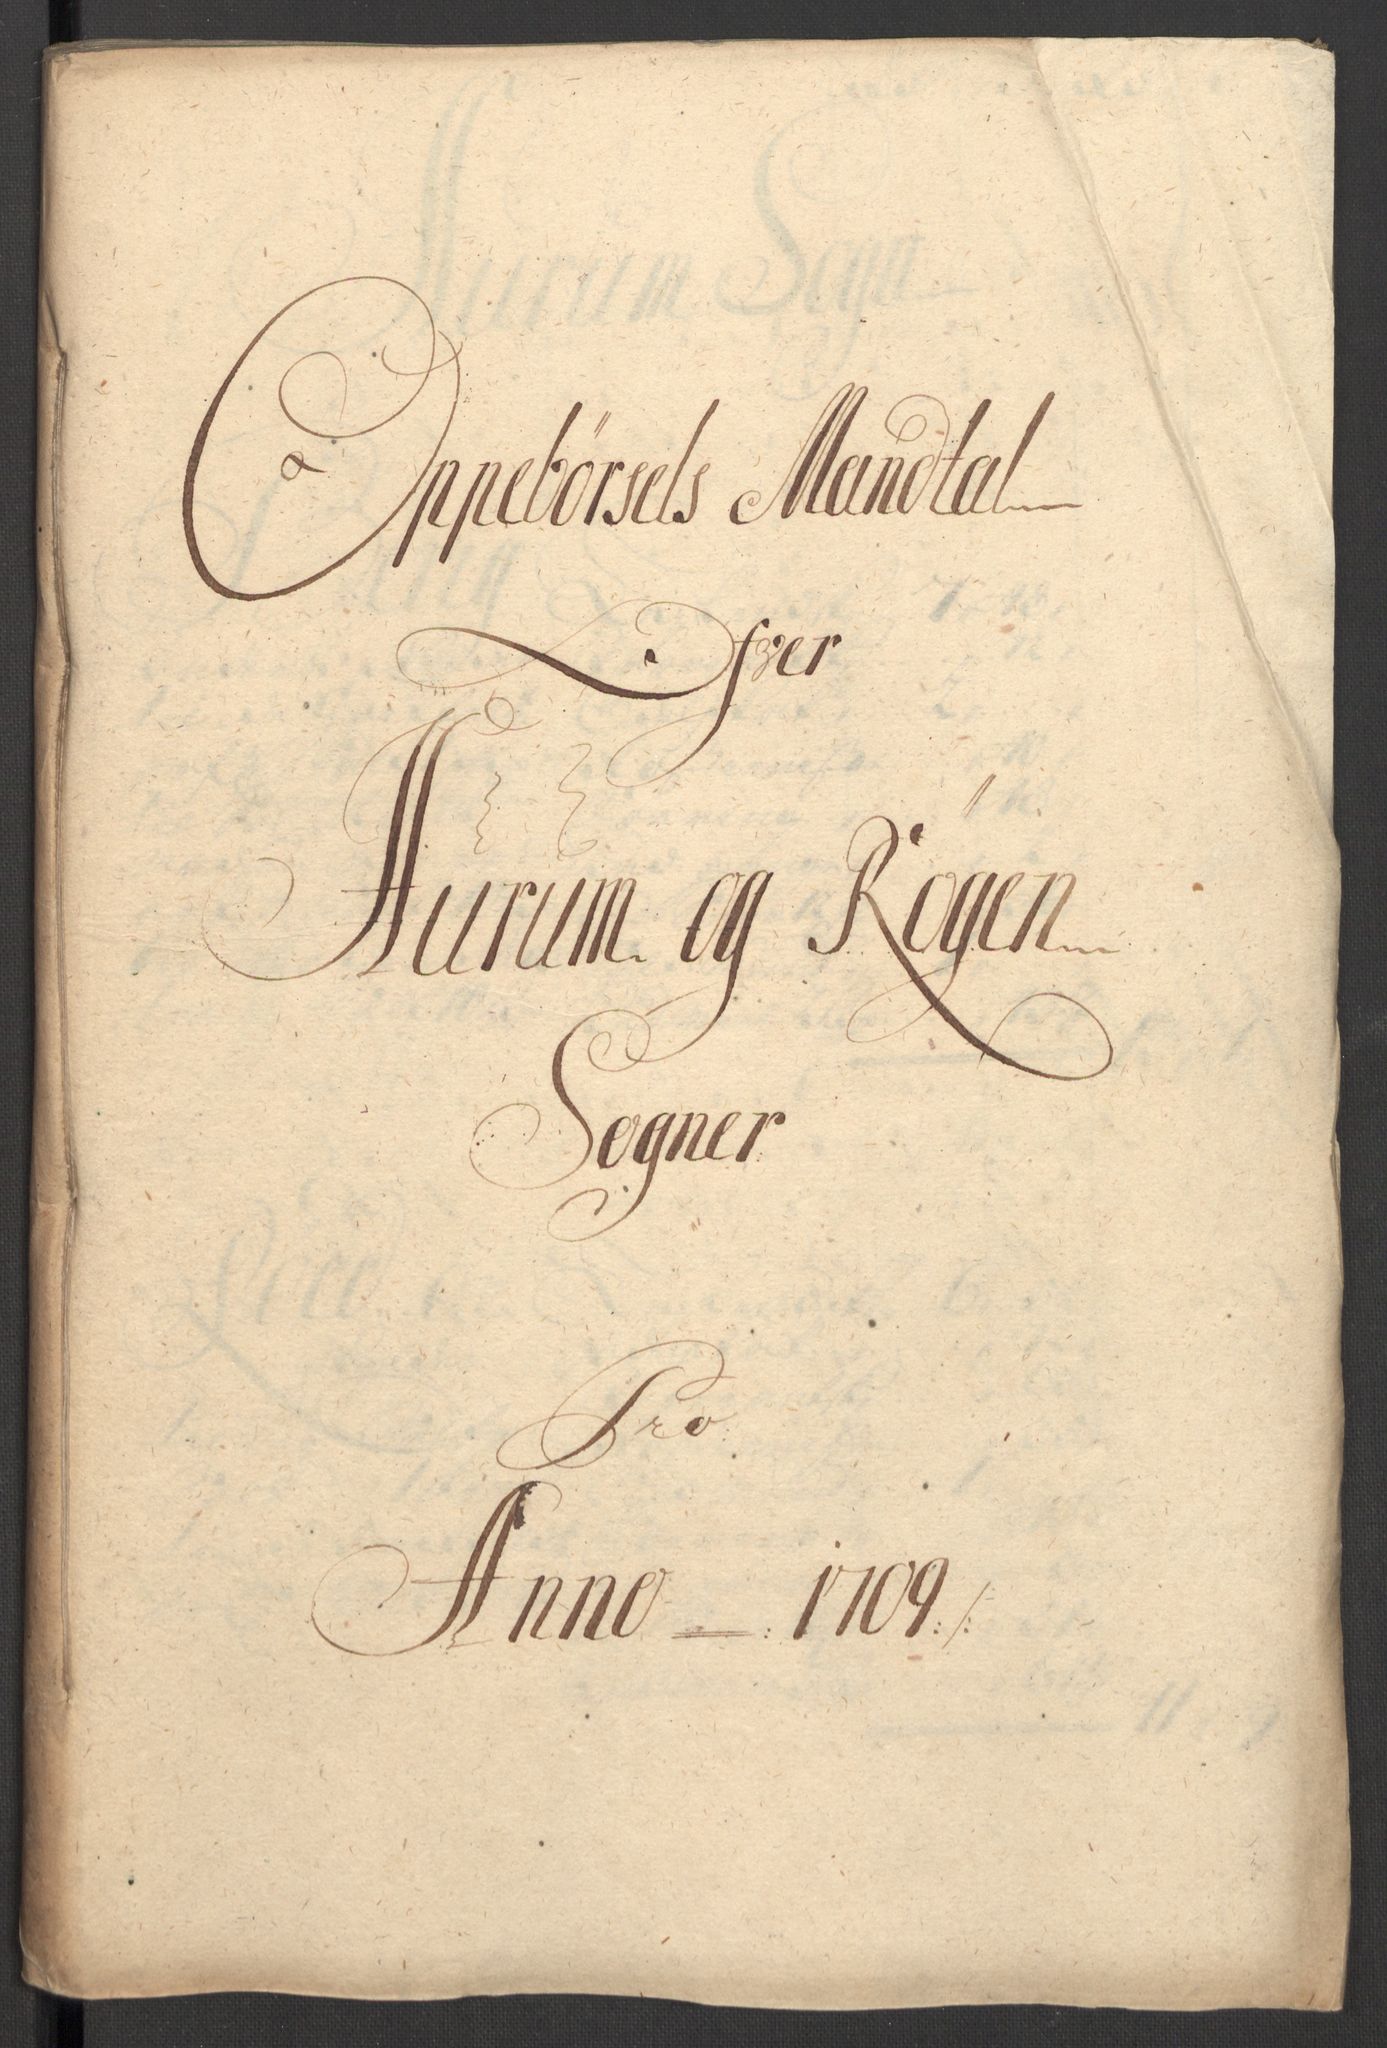 Oppebörsels Mandtal
Ofver
Aurum og Rögen
Sogner
Pro
Anno 1709